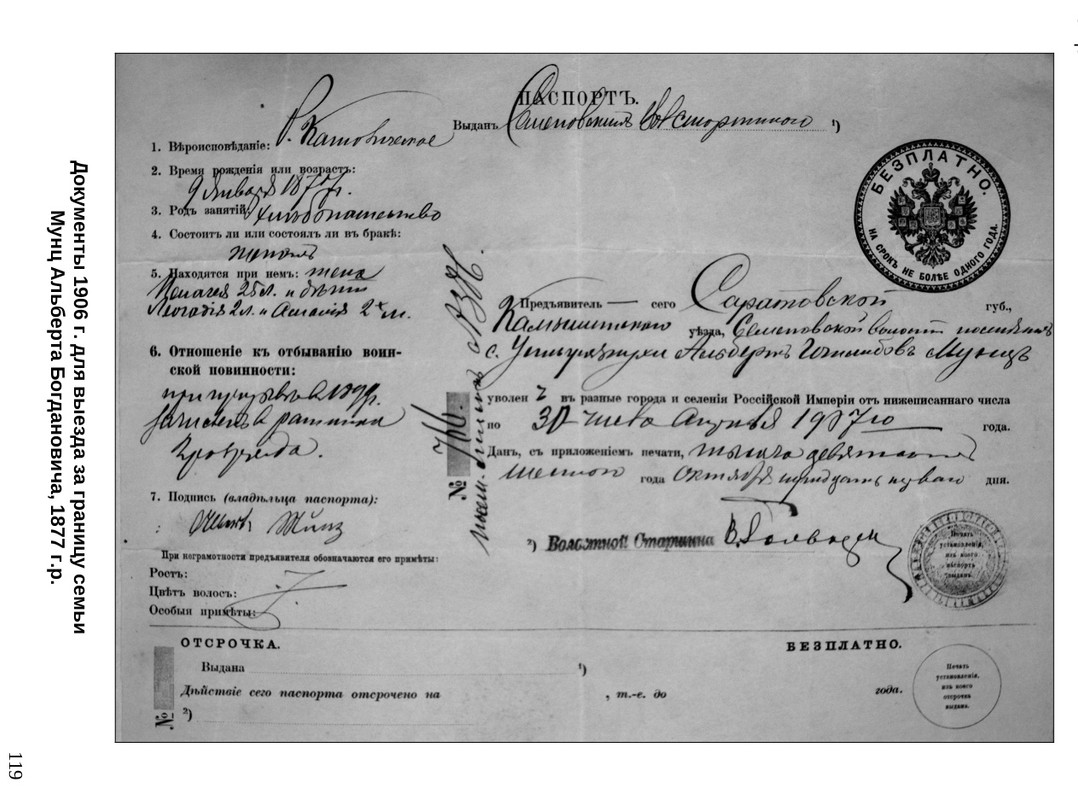 Документы 1906 г. для выезда за границу семьи
Мунц Альберта Богдановича, 1877 г.р.
ПАСПОРТЪ.
Выданъ Семеновскимъ Вол. ¹)
1. Вѣроисповѣданіе: Р. Католическое
2. Время рожденія или возрастъ:
9 Января 1877 г.
3. Родъ занятій: хлѣбопашество
4. Состоитъ ли или состоялъ ли въ бракѣ:
женатъ
5. Находятся при немъ: жена
Пелагея 25 л. и дѣти
2 л. и 2 л.
6. Отношеніе къ отбыванію воин-
ской повинности:
при призывѣ въ 1899 г.
зачисленъ въ ратники
2 разряда.
7. Подпись (владѣльца паспорта):
При неграмотности предъявителя обозначаются его примѣты:
Ростъ:
Цвѣтъ волосъ:
Особыя примѣты:
БЕЗПЛАТНО.
НА СРОКЪ НЕ БОЛѢЕ ОДНОГО ГОДА.
Предъявитель — сего Саратовской губ.,
Камышинскаго уѣзда, Семеновской волости поселянинъ
с. Альбертъ Мунцъ
уволен ъ въ разные города и селенія Россійской Имперіи отъ нижеписаннаго числа
по 30 число Апрѣля 1907 го года.
Данъ, съ приложеніемъ печати, тысяча девятьсотъ
шестого года Октября тридцать перваго дня.
№ 766.
²) Волостной Старшина
Печать
установленія,
изъ коего
паспортъ
выданъ.
ОТСРОЧКА.
БЕЗПЛАТНО.
Выдана ¹)
Дѣйствіе сего паспорта отсрочено на , т.-е. до года.
№ ²)
Печать
установленія,
изъ коего
отсрочка
выдана.
119